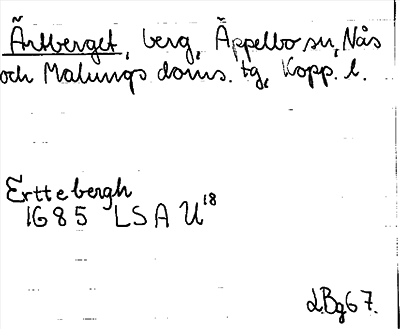 Ärtberget, berg, Äppelbo sn, Nås
och Malungs doms. tg, Kopp. l.
Erttebergh
1685 LSA U18
LBg67.